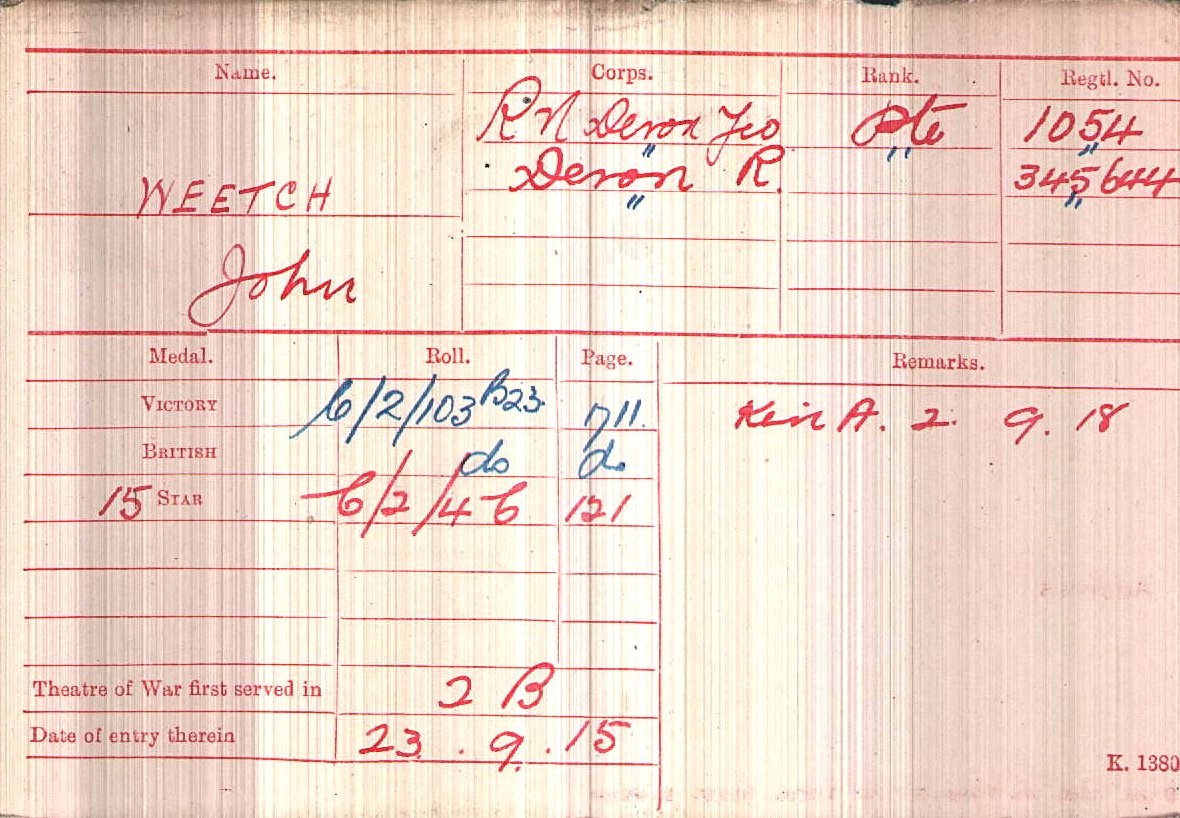 Name. Corps. Rank. Regtl. No.
R N Devon Yeo Pte 1054
" " "
WEETCH Devon R. 345644
" "
John
Medal. Roll. Page. Remarks.
VICTORY 6/2/103 B23. 711. Kin A. 2. 9. 18
BRITISH do do
15 STAR 6/2/46 121
Theatre of War first served in 2 B
Date of entry therein 23.9.15
K. 1380